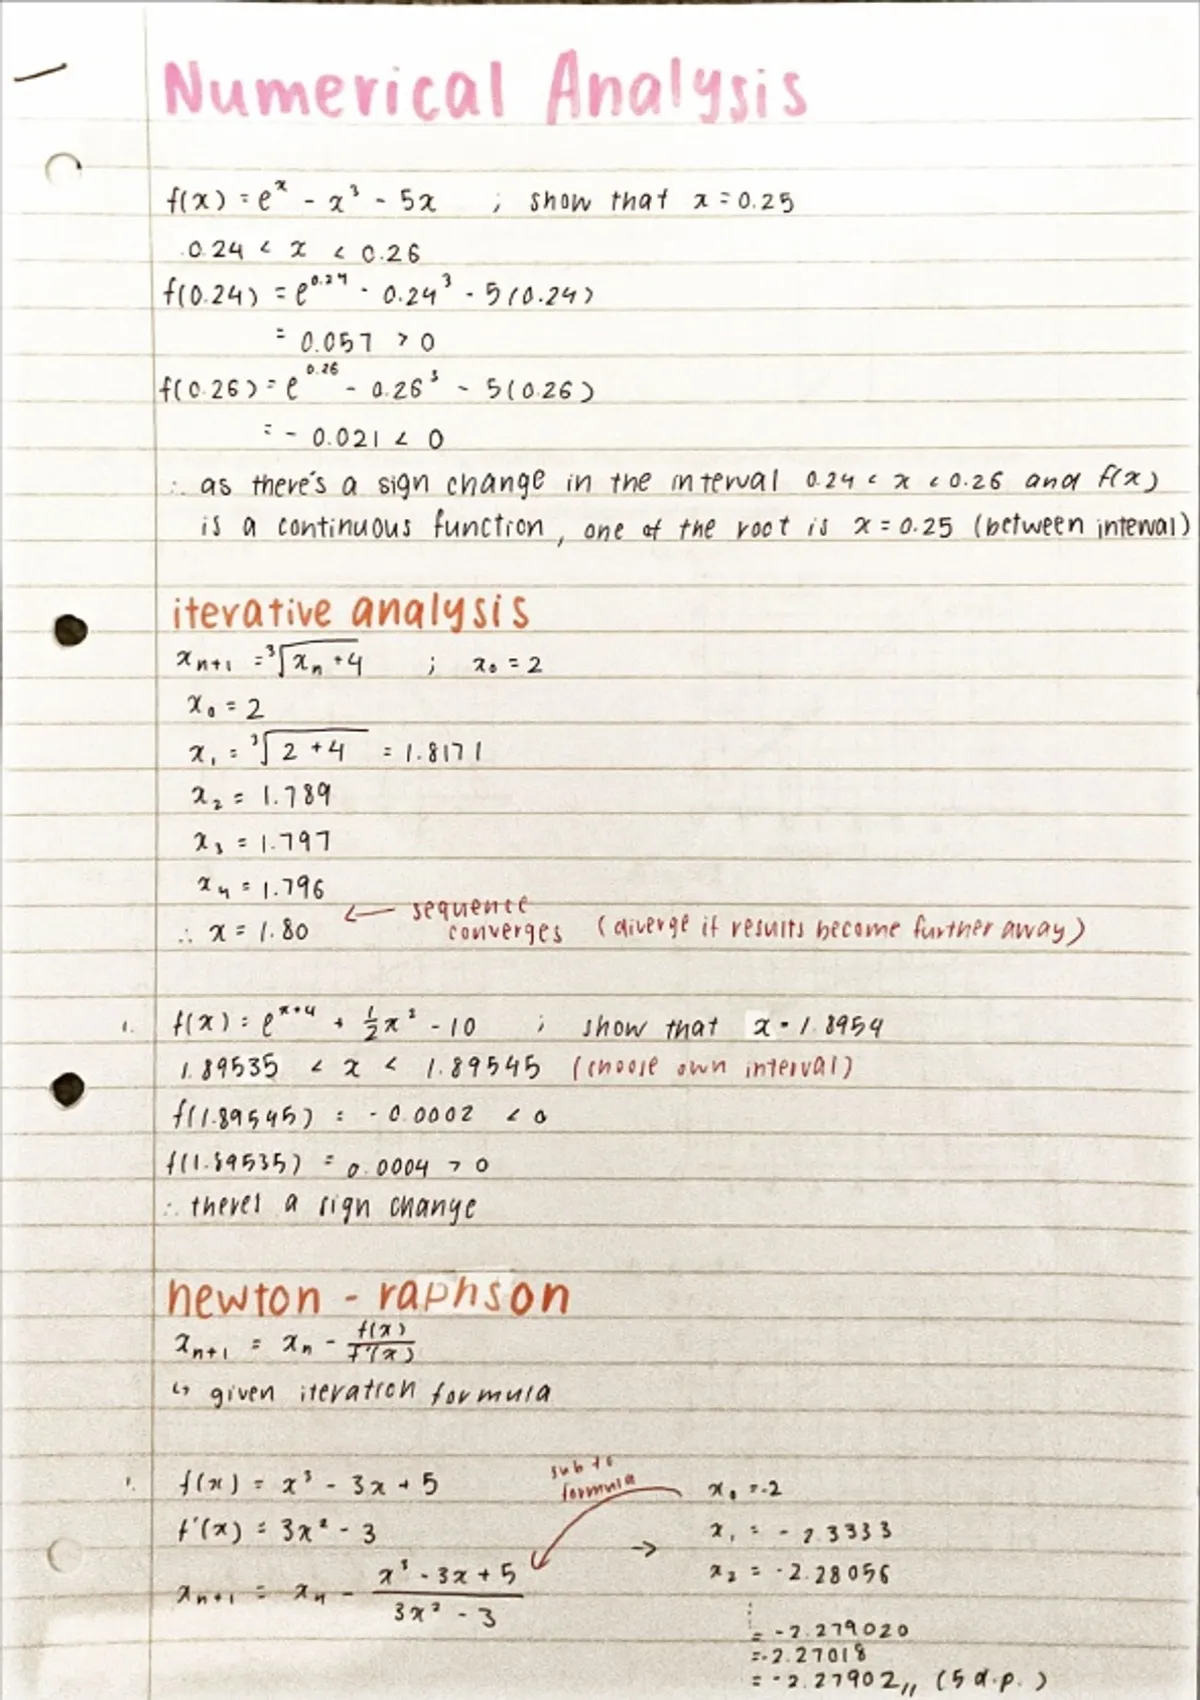 Numerical Analysis
f(x) = e^x - x³ - 5x ; show that x = 0.25
0.24 < x < 0.26
f(0.24) = e^0.24 - 0.24³ - 5(0.24)
= 0.057 > 0
f(0.26) = e^0.26 - 0.26³ - 5(0.26)
= - 0.021 < 0
∴ as there's a sign change in the interval 0.24 < x < 0.26 and f(x)
is a continuous function, one of the root is x = 0.25 (between interval)
iterative analysis
xₙ₊₁ = ³√(xₙ + 4) ; x₀ = 2
x₀ = 2
x₁ = ³√(2 + 4) = 1.8171
x₂ = 1.789
x₃ = 1.797
x₄ = 1.796
∴ x = 1.80 ← sequence converges (diverge if results become further away)
1. f(x) = e^(x+4) + ½x² - 10 ; show that x = 1.8954
1.89535 < x < 1.89545 (choose own interval)
f(1.89545) = - 0.0002 < 0
f(1.89535) = 0.0004 > 0
∴ there's a sign change
newton - raphson
xₙ₊₁ = xₙ - f(x)/f'(x)
↳ given iteration formula
1. f(x) = x³ - 3x + 5
f'(x) = 3x² - 3
xₙ₊₁ = xₙ - (x³ - 3x + 5)/(3x² - 3)
sub to
formula
→
x₀ = -2
x₁ = - 2.3333
x₂ = - 2.28056
⋮
= -2.279020
= -2.27018
= -2.27902,, (5 d.p.)